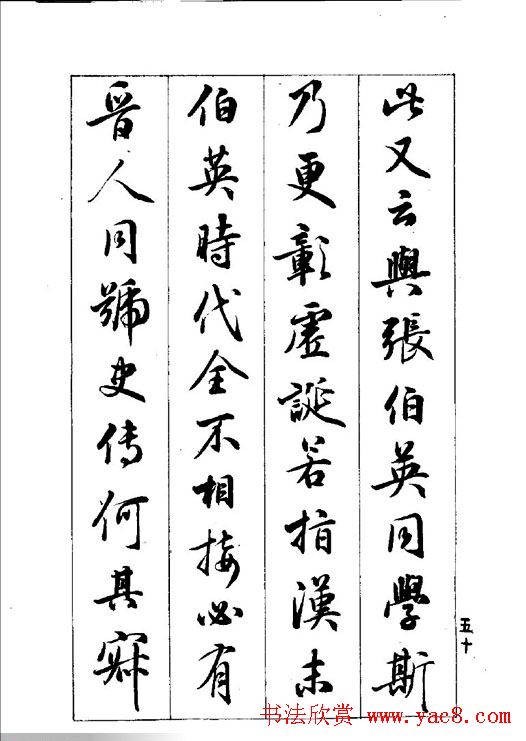 此又云與張伯英同學斯
乃更彰虛誕若指漢末
伯英時代全不相接必有
晉人同號史傳何其寂
五十
书法欣赏 www.yac8.com